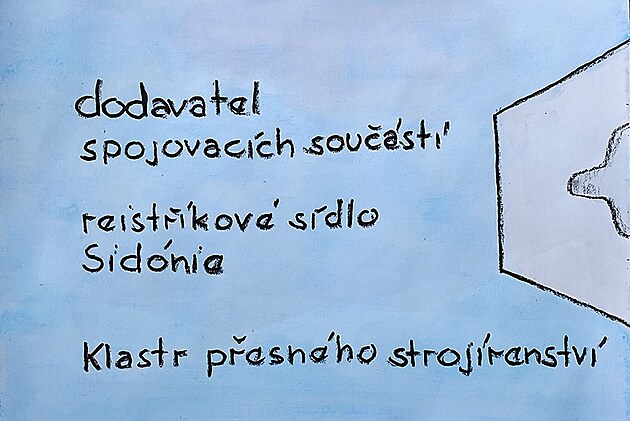 dodavatel
spojovacích součástí
reistříkové sídlo
Sidónia
Klastr přesného strojírenství